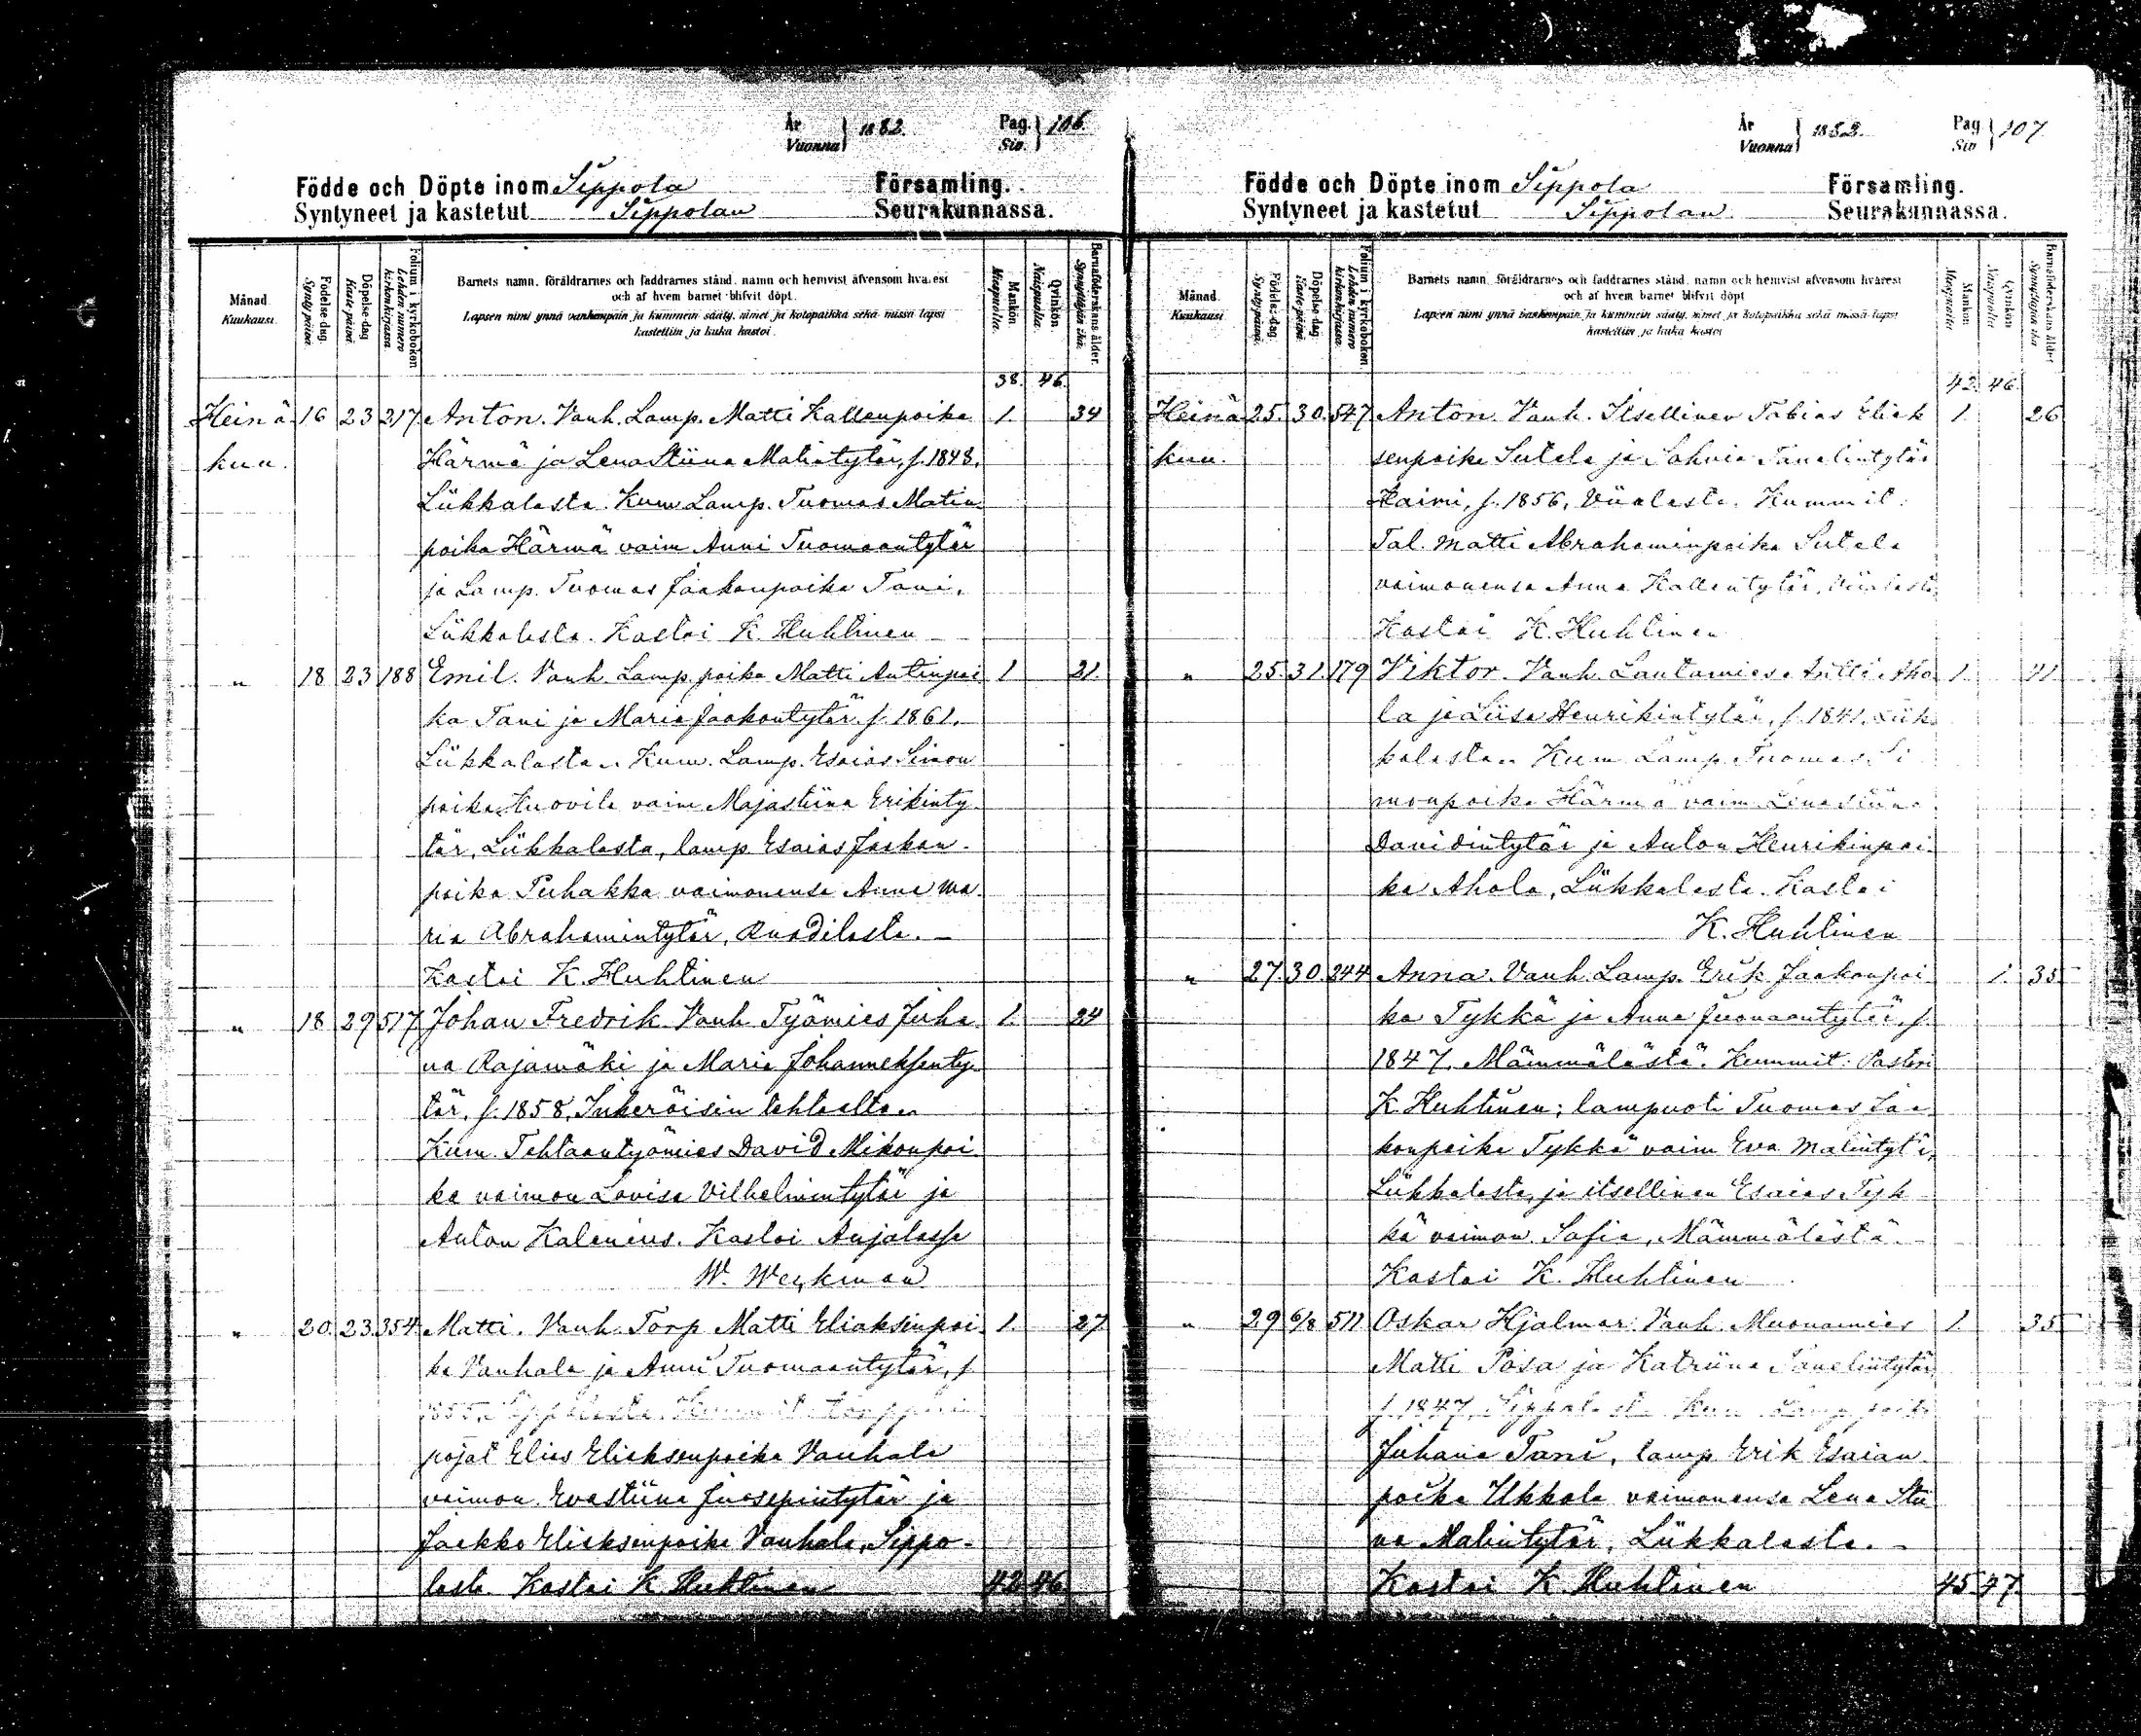 År
Vuonna } 1882.
Pag.
Siv. } 106.
Födde och Döpte inom Sippola Församling.
Syntyneet ja kastetut Sippolan Seurakunnassa.
Månad. Kuukausi.
Födelse-dag. Syntypäivä.
Döpelse-dag Kaste-päivä.
Folium i kyrkoboken Lehden numero kirkonkirjassa
Barnets namn, föräldrarnes och faddrarnes stånd, namn och hemvist äfvensom hvarest
och af hvem barnet blifvit döpt.
Lapsen nimi ynnä vanhempain ja kummein sääty, nimet ja kotopaikka sekä missä lapsi
kastettiin ja kuka kastoi.
Mankön. Miespuolia.
Qvinkön. Naispuolia.
Barnaföderskans ålder. Synnyttäjän ikä.
38. 46.
Heinä 16 23 217 Anton. Vanh. Lamp. Matti Kallenpoika 1. 34
kuu. Härmä ja Lena Stiina Matintytär, s. 1848,
Liikkalasta. Kum Lamp. Tuomas Matin
poika Härmä vaim Anni Tuomaantytär
ja Lamp. Tuomas Jaakonpoika Tani,
Liikkalasta. Kastoi K. Huhtinen
" 18 23 188 Emil. Vanh. Lamp. poika Matti Antinpoi 1 21.
ka Tani ja Maria Jaakontytär. s. 1861.
Liikkalasta. Kum. Lamp. Esaias Simon
poika Kuovila vaim Majastiina Erikinty
tär, Liikkalasta, lamp Esaias Jaakon
poika Puhakka vaimonensa Anna Ma
ria Abrahamintytär, Ruadilasta.
Kastoi K. Huhtinen
" 18 29 517 Johan Fredrik. Vanh. Työmies Juha 1. 24
na Rajamäki ja Maria Johanneksenty
tär, s. 1858, Inkeröisin tehtaalta
Kum. Tehtaantyömies David Mikonpoi
ka vaimon Lovisa Vilhelmintytär ja
Anton Kalenius. Kastoi Anjalassa
W. Weykman
" 20. 23. 354 Matti. Vanh. Torp Matti Eliaksenpoi 1. 27
ka Vanhala ja Anni Tuomaantytär, s
1855, Sippolasta. Kummit torpparin
pojat Elias Eliaksenpoika Vanhala
vaimon Evastiina Juosepintytär ja
Jaakko Eliaksenpoika Vanhala, Sippo
lasta. Kastoi K. Huhtinen 42 46
År
Vuonna } 1882.
Pag
Siv } 107
Födde och Döpte inom Sippola Församling.
Syntyneet ja kastetut Sippolan Seurakunnassa.
Månad. Kuukausi.
Födelse-dag Syntypäivä.
Döpelse-dag Kaste-päivä
Folium i kyrkoboken Lehden numero kirkonkirjassa
Barnets namn, föräldrarnes och faddrarnes stånd, namn och hemvist äfvensom hvarest
och af hvem barnet blifvit döpt
Lapsen nimi ynnä vanhempain ja kummein sääty, nimet ja kotopaikka sekä missä lapsi
kastettiin ja kuka kastoi
Mankön Miespuolia
Qvinkön Naispuolia
Barnaföderskans ålder Synnyttäjän ikä
42 46.
Heinä 25. 30. 547 Anton. Vanh. Itsellinen Tobias Eliak 1. 26
kuu. senpoika Sutela ja Sohvia Tanelintytär
Kaimi, s. 1856, Viialasta. Kummit.
Tal. Matti Abrahaminpoika Sutela
vaimonensa Anna Kallentytär, Viialasta
Kastoi K. Huhtinen
" 25. 31. 179 Viktor. Vanh. Lautamies Antti Aho 1. 41
la ja Liisa Henrikintytär, s. 1841. Liik
kalasta. Kum Lamp. Tuomas Si
monpoika Härmä vaim Lenastiina
Davidintytär ja Anton Henrikinpoi
ka Ahola, Liikkalasta. Kastoi
K. Huhtinen
" 27. 30. 244 Anna. Vanh. Lamp. Erik Jaakonpoi 1. 35
ka Tykkä ja Anna Juonaantytär, s.
1847. Mämmälästä. Kummit: Pastori
K. Huhtinen; lampuoti Tuomas Jaa
konpoika Tykkä vaim Eva Matintytär,
Liikkalasta, ja itsellinen Esaias Tyk
kä vaimon Sofia, Mämmälästä.
Kastoi K. Huhtinen
" 29 6/8 511 Oskar Hjalmar. Vanh. Muonamies 1. 35
Matti Posa ja Katriina Tanelintytär
s. 1847, Sippolasta Kum Lamp. poika
Juhana Tani, lamp Erik Esaian
poika Ukkola vaimonensa Lena Stii
na Matintytär, Liikkalasta.
Kastoi K. Huhtinen 45 47.